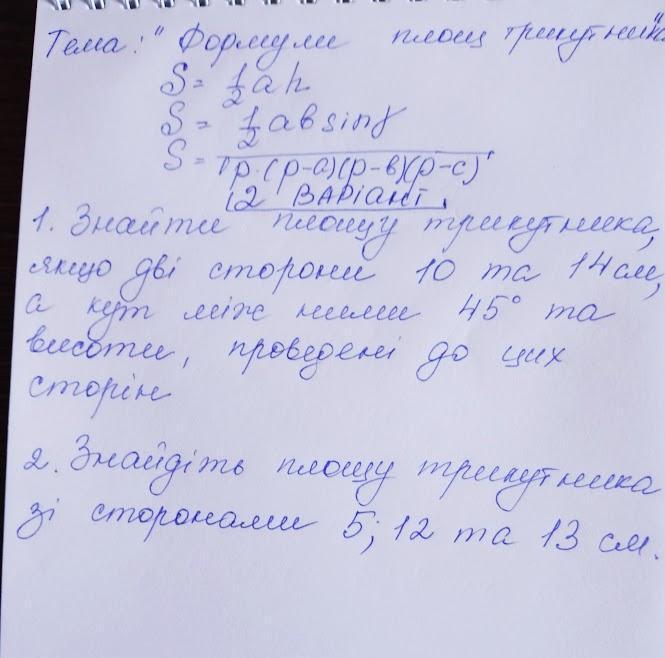 Тема: "Формули площ трикутника"
S = 1/2 a h
S = 1/2 a b sin γ
S = √p·(p-a)(p-в)(p-c)
2 ВАРІАНТ.
1. Знайти площу трикутника,
якщо дві сторони 10 та 14 см,
а кут між ними 45° та
висоти, проведені до цих
сторін
2. Знайдіть площу трикутника
зі сторонами 5; 12 та 13 см.